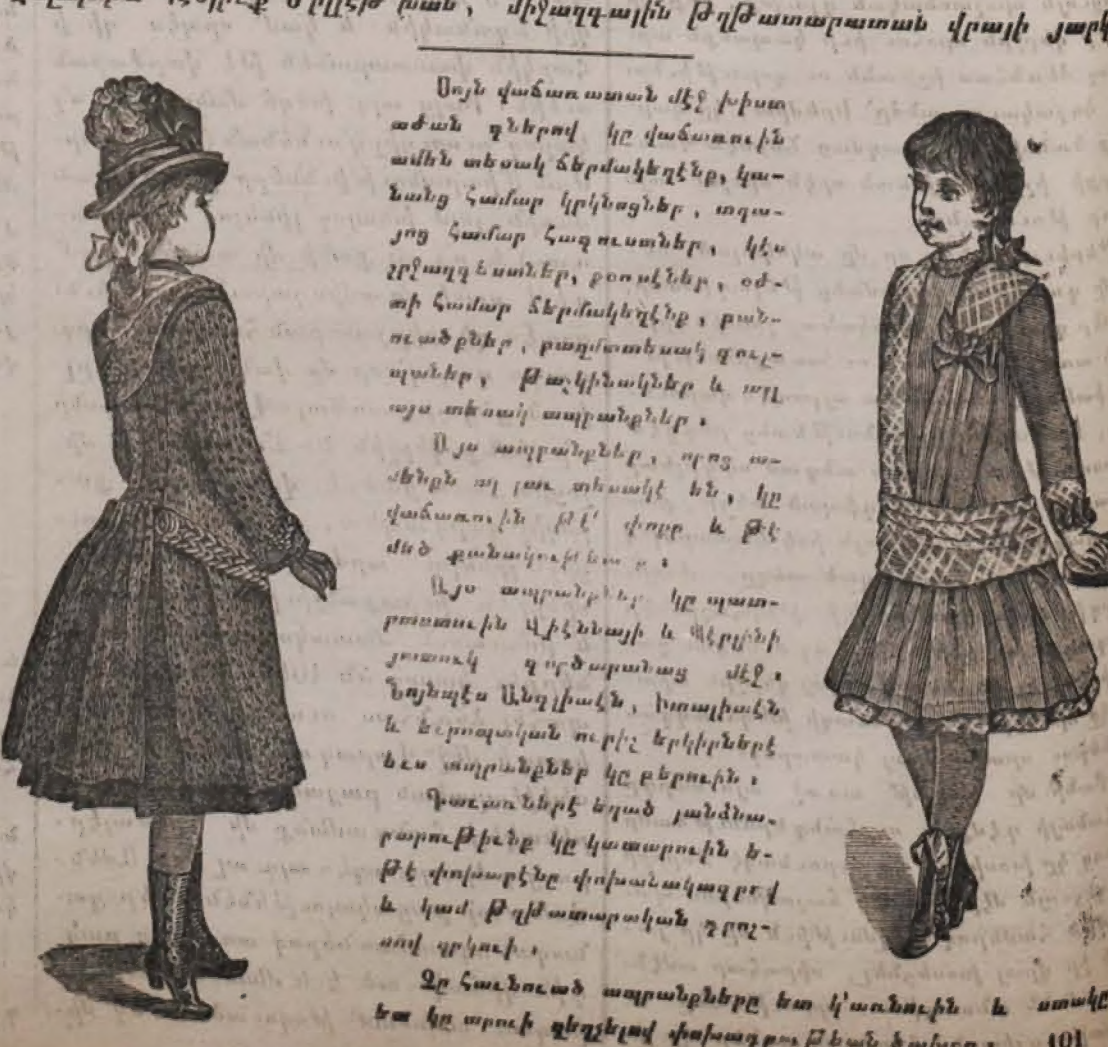 միջազգային Թղթատարատան վրայի յարկ
Սոյն վաճառատան մէջ խիստ
աժան գներով կը վաճառուին
ամեն տեսակ ճերմակեղէնք, կա-
նանց համար կրկնոցներ, տղա-
յոց համար հագուստներ, կէս
շրջազգեստներ, քօռսէներ, օժ-
տի համար ճերմակեղէնք, բան-
ուածքներ, բազմատեսակ գուլ-
պաներ, թաշկինակներ և այլ
այս տեսակ ապրանքներ.
Այս ապրանքներ, որոց ա-
մենքն ալ լաւ տեսակէ են, կը
վաճառուին թէ՛ փոքր և թէ
մեծ քանակութեամբ.
Այս ապրանքներ կը պատ-
րաստուին Վիէննայի և Պէրլինի
յատուկ գործարանաց մէջ.
Նոյնպէս Անգլիաէն, Իտալիաէն
և եւրոպական ուրիշ երկիրներէ
եւս ապրանքներ կը բերուին.
Գաւառներէ եղած յանձնա-
րարութիւնք կը կատարուին ե-
թէ փոխարէնը փոխանակագրով
և կամ թղթատարական դրոշ-
մով զրկուի.
Չը հաւնուած ապրանքները ետ կ՚առնուին և ստակը
ետ կը տրուի զեղչելով փոխադրութեան ծախքը. 101